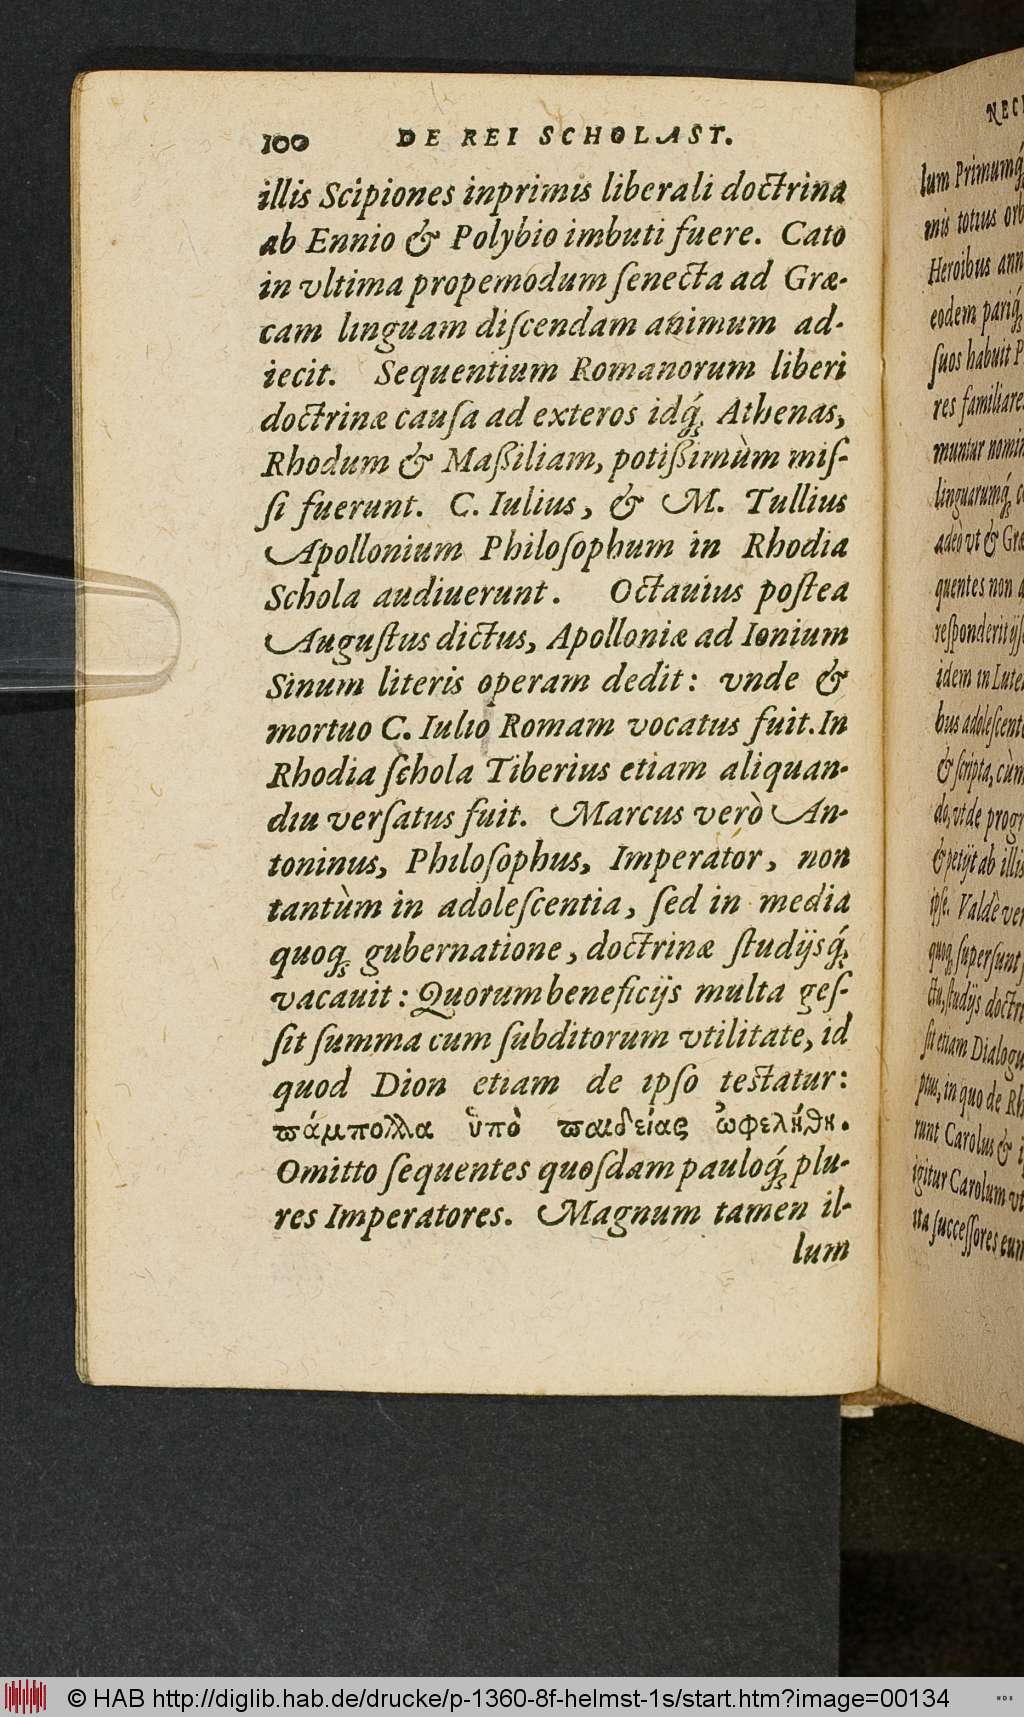 100 DE REI SCHOLAST.
illis Scipiones inprimis liberali doctrina
ab Ennio & Polybio imbuti fuere. Cato
in vltima propemodum ſenecta ad Græ-
cam linguam diſcendam animum ad-
iecit. Sequentium Romanorum liberi
doctrinæ cauſa ad exteros idq́; Athenas,
Rhodum & Maßiliam, potißimùm miſ-
ſi fuerunt. C. Iulius, & M. Tullius
Apollonium Philoſophum in Rhodia
Schola audiuerunt. Octauius poſtea
Auguſtus dictus, Apolloniæ ad Ionium
Sinum literis operam dedit: vnde &
mortuo C. Iulio Romam vocatus fuit. In
Rhodia ſchola Tiberius etiam aliquan-
diu verſatus fuit. Marcus verò An-
toninus, Philoſophus, Imperator, non
tantùm in adoleſcentia, ſed in media
quoq; gubernatione, doctrinæ ſtudijsq́;
vacauit: Quorum beneficijs multa geſ-
ſit ſumma cum ſubditorum vtilitate, id
quod Dion etiam de ipſo teſtatur:
ϖάμπολλα ὑπὸ ϖαιδείας ὠφελήθη.
Omitto ſequentes quoſdam pauloq́; plu-
res Imperatores. Magnum tamen il-
lum
lum Primumq́;
mis totius orb
Heroibus ann
eodem pariq́;
ſuos habuit P
res familiares
muntur nomin
linguarumq́; c
adeò vt & Græ
quentes non a
reſponderit ijſ
idem in Lute
bus adoleſcent
& ſcripta, cùm
do, vt de progr
& petijt ab illis
ipſe. Valdè ver
quoq; ſuperſunt
ctu, ſtudijs doctri
ſit etiam Dialogu
ptus, in quo de Rh
runt Carolus & 
igitur Carolum vt
ita ſucceſſores eum
© HAB http://diglib.hab.de/drucke/p-1360-8f-helmst-1s/start.htm?image=00134